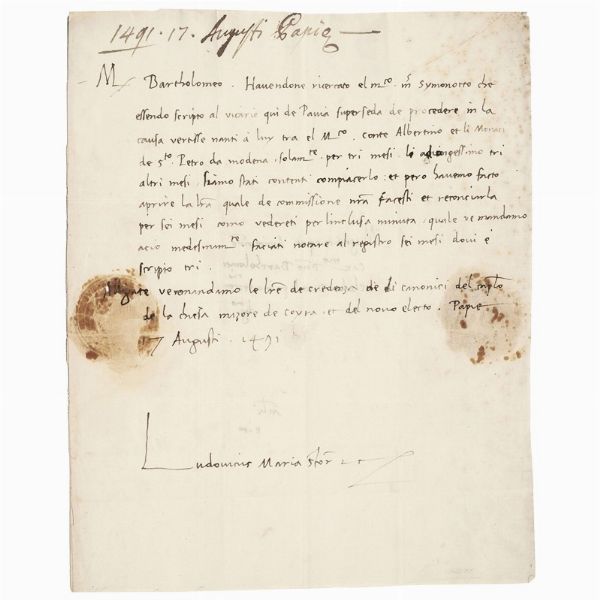 1491 · 17 · Augusti Papie
M. Bartholomeo. Havendone ricercato el m.co m. Symonotto che
essendo scripto al vicario qui de Pavia superseda de procedere in la
causa vertisse nanti a luy tra el M.co conte Albertino et li Monaci
de s.to Petro da modena solam.te per tri mesi, li adiongessimo tri
altri mesi. Siamo stati contenti compiacerlo: et pero havemo facto
aprire la lra quale de commissione nra facesti et reconcirla
per sei mesi como vedereti per linclusa minuta, quale ve mandamo
acio medesmam.te faciati notare al registro sei mesi dovi è
scripto tri.
Alligate ve mandamo le lre de credenza de li canonici del caplo
de la chiesa mazore de et del novo electo. Papie
17 Augusti · 1491
Ludovicus Maria Sfor